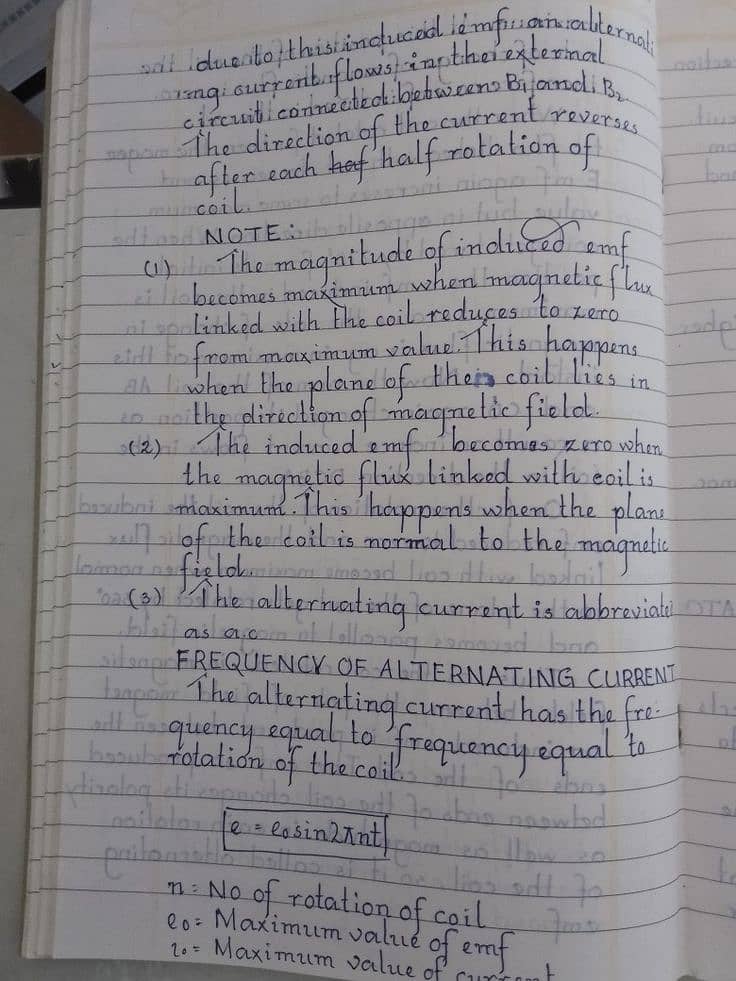 due to this induced emf an alternati
ng current flows in the external
circuit connected between B1 and B2.
The direction of the current reverses
after each haf half rotation of
coil.
NOTE:
(1) The magnitude of induced emf
becomes maximum when magnetic flux
linked with the coil reduces to zero
from maximum value. This happens
when the plane of the coil lies in
the direction of magnetic field.
(2) The induced emf becomes zero when
the magnetic flux linked with coil is
maximum. This happens when the plane
of the coil is normal to the magnetic
field.
(3) The alternating current is abbreviated
as a.c
FREQUENCY OF ALTERNATING CURRENT
The alternating current has the fre-
quency equal to frequency equal to
rotation of the coil.
e = e₀ sin2πnt
n = No of rotation of coil
e₀ = Maximum value of emf
i₀ = Maximum value of current